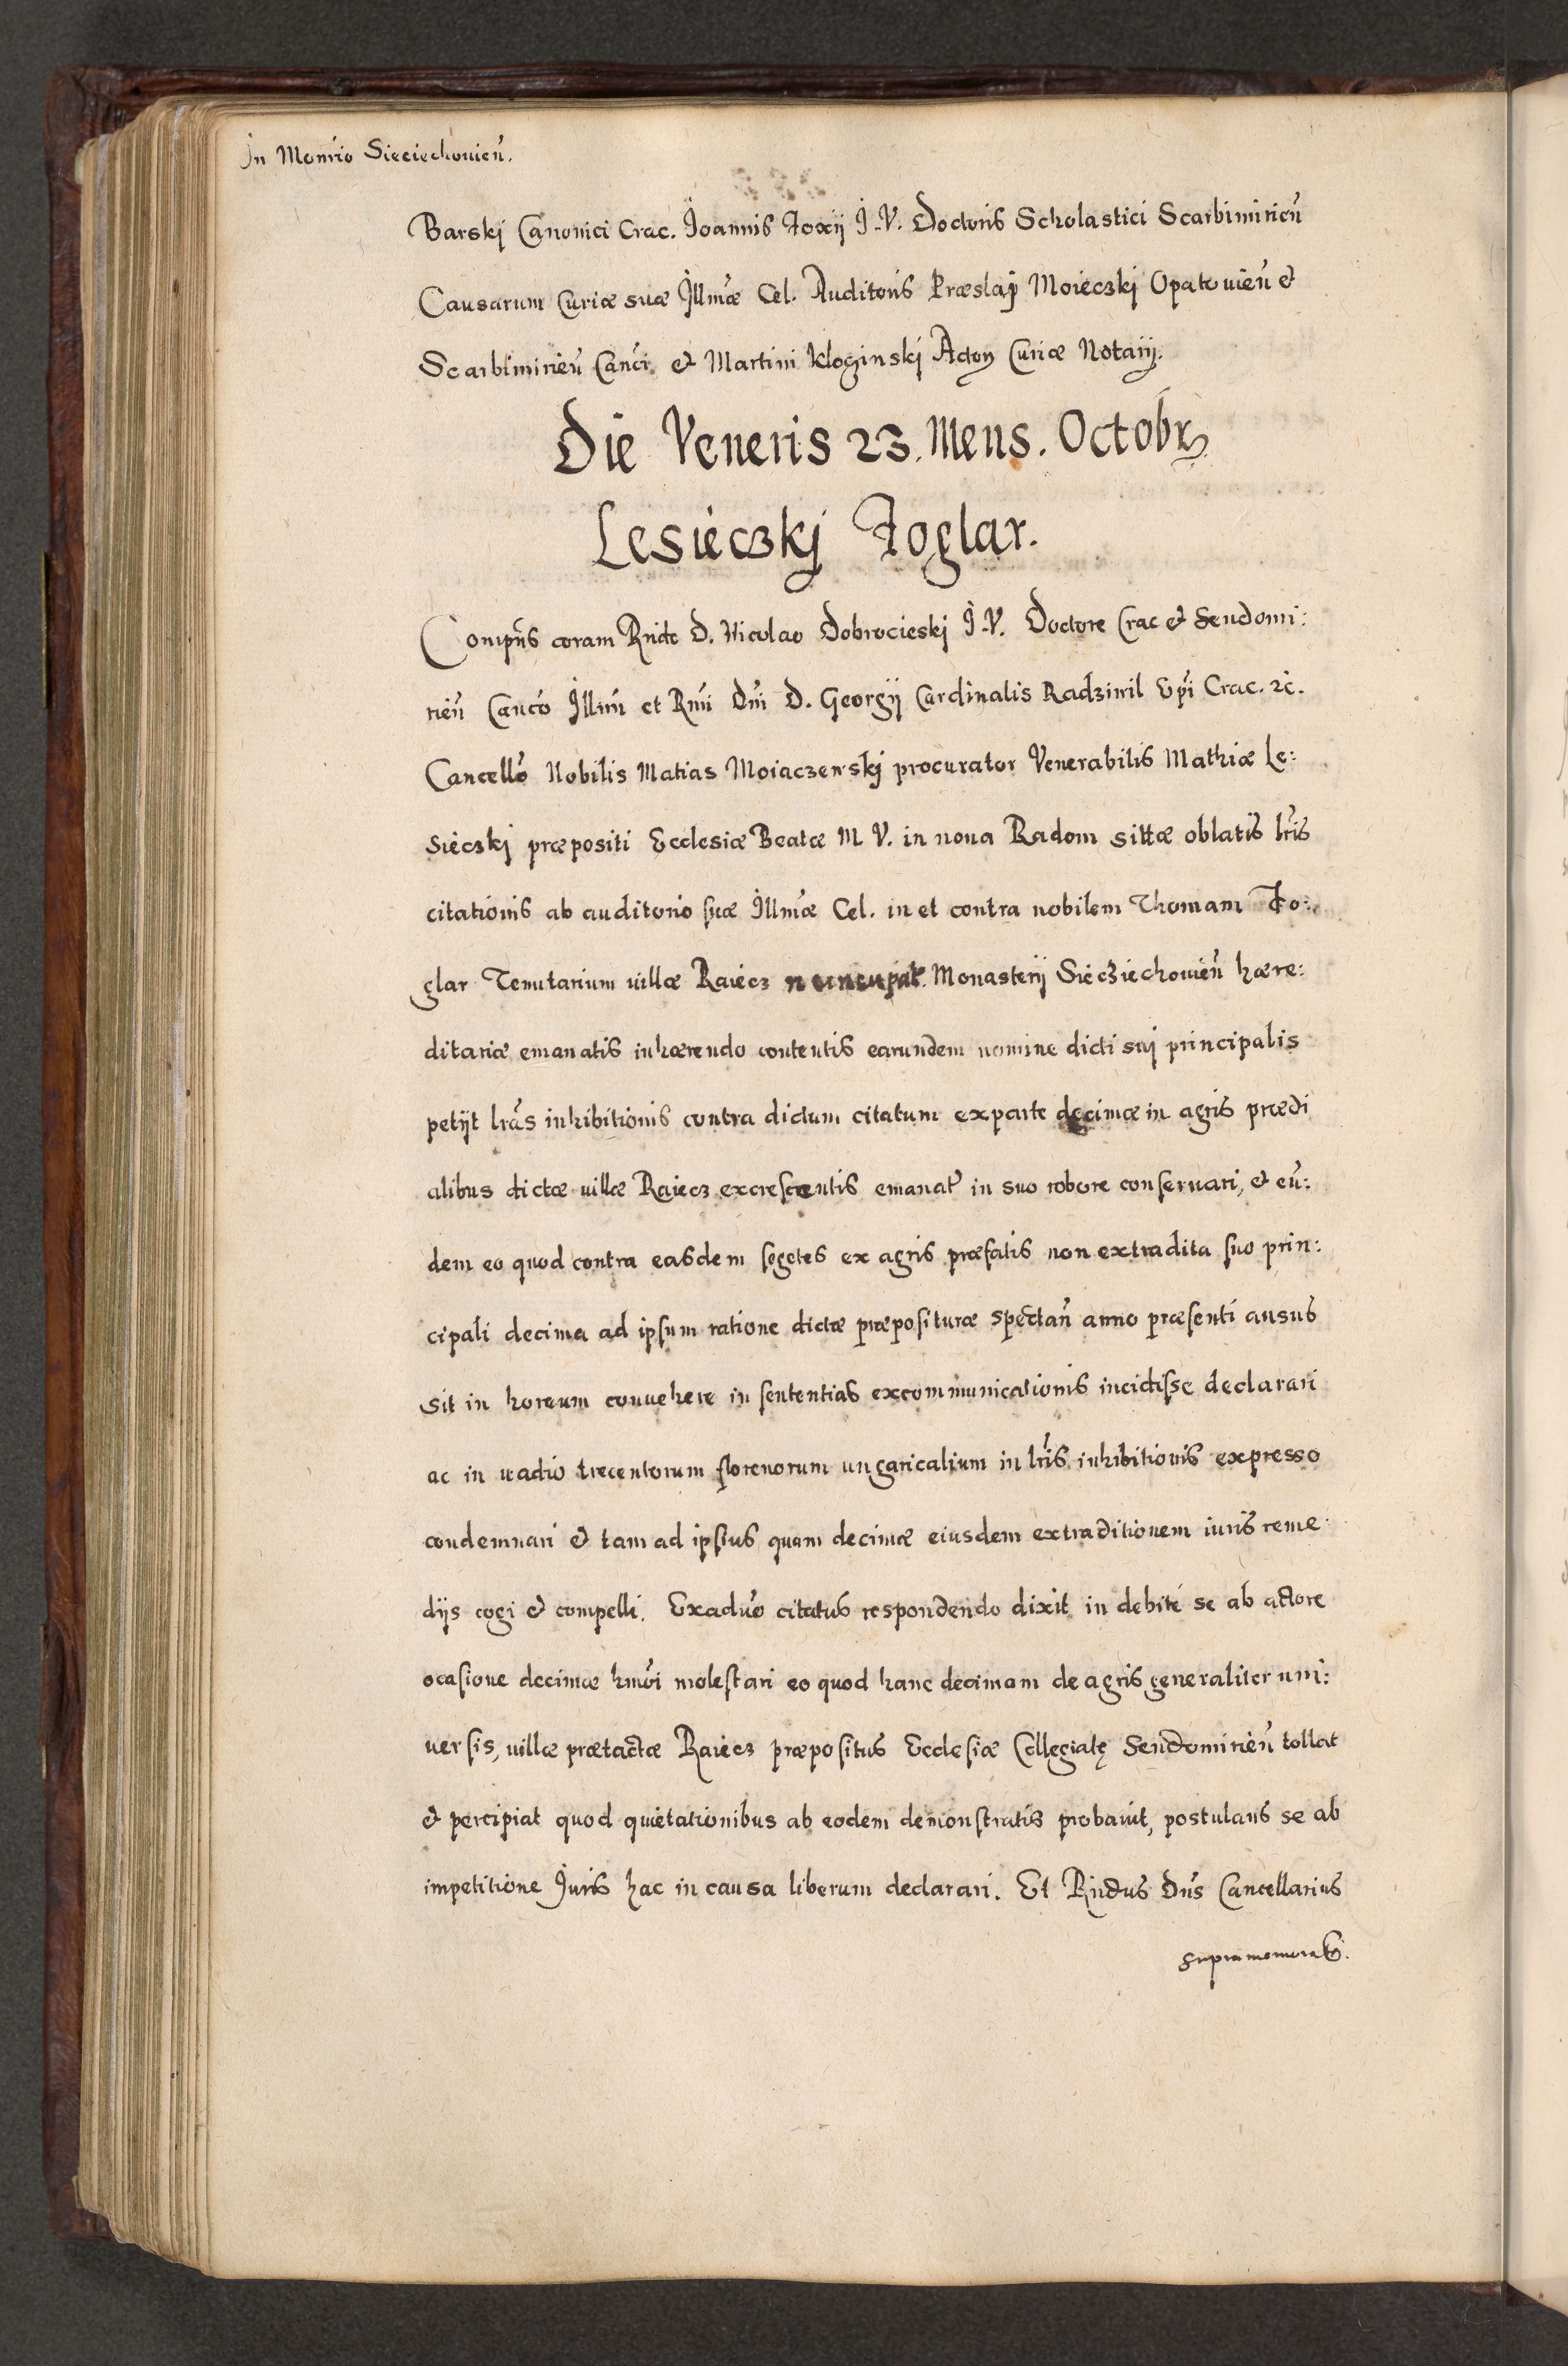 In Monrio Sieciechouień.
Barskj Canonici Crac. Joannis Foxij J. V. Doctoris Scholastici Scarbimirień
Causarum Curiæ suæ Illmæ Cel. Auditoris Præslaj Moieczkj Opatouień et
Scarbimirień Canci et Martini Kloginskj Actoꝝ Curiæ Notarij.
Die Veneris 23. Mens. Octobr
Lesieczkj Foglar.
Compns coram Rndo D. Nicolao Dobrocieskj J. V. Doctore Crac et Sendomi:
rień Canco Illmi et Rmi Dni D. Georgij Cardinalis Radziwil Epi Crac. etc.
Cancello Nobilis Matias Moiaczewskj procurator Venerabilis Mathiæ Le:
sieczkj præpositi Ecclesiæ Beatæ M V. in noua Radom sittæ oblatis lris
citationis ab auditorio suæ Illmæ Cel. in et contra nobilem Thomam Fo:
glar Tenutarium villæ Raiecz nuncupat. Monasterij Siecziechouień hære:
ditariæ emanatis inhærendo contentis earundem nomine dicti sui principalis
petijt lras inhibitionis contra dictum citatum ex parte decimæ in agris prædi
alibus dictæ villæ Raiecz excrescentis emanat in suo robore conseruari, et eu:
dem eo quod contra easdem segetes ex agris præfatis non extradita suo prin:
cipali decima ad ipsum ratione dictæ præposituræ spectań anno præsenti ausus
sit in horeum conuehere in sententias excommunicationis incidisse declarari
ac in vadio trecentorum florenorum ungaricalium in lris inhibitionis expresso
condemnari et tam ad ipsius quam decimæ eiusdem extraditionem iuris reme
dijs cogi et compelli. Exaduo citatus respondendo dixit in debite se ab actore
ocasione decimæ hmoi molestari eo quod hanc decimam de agris generaliter uni:
uersis, villæ prætactæ Raiecz præpositus Ecclesiæ Collegiatę Sendomirień tollat
et percipiat quod quietationibus ab eodem demonstratis probauit, postulans se ab
impetitione Juris hac in causa liberum declarari. Et Rndus Dns Cancellarius
supramemorat9.